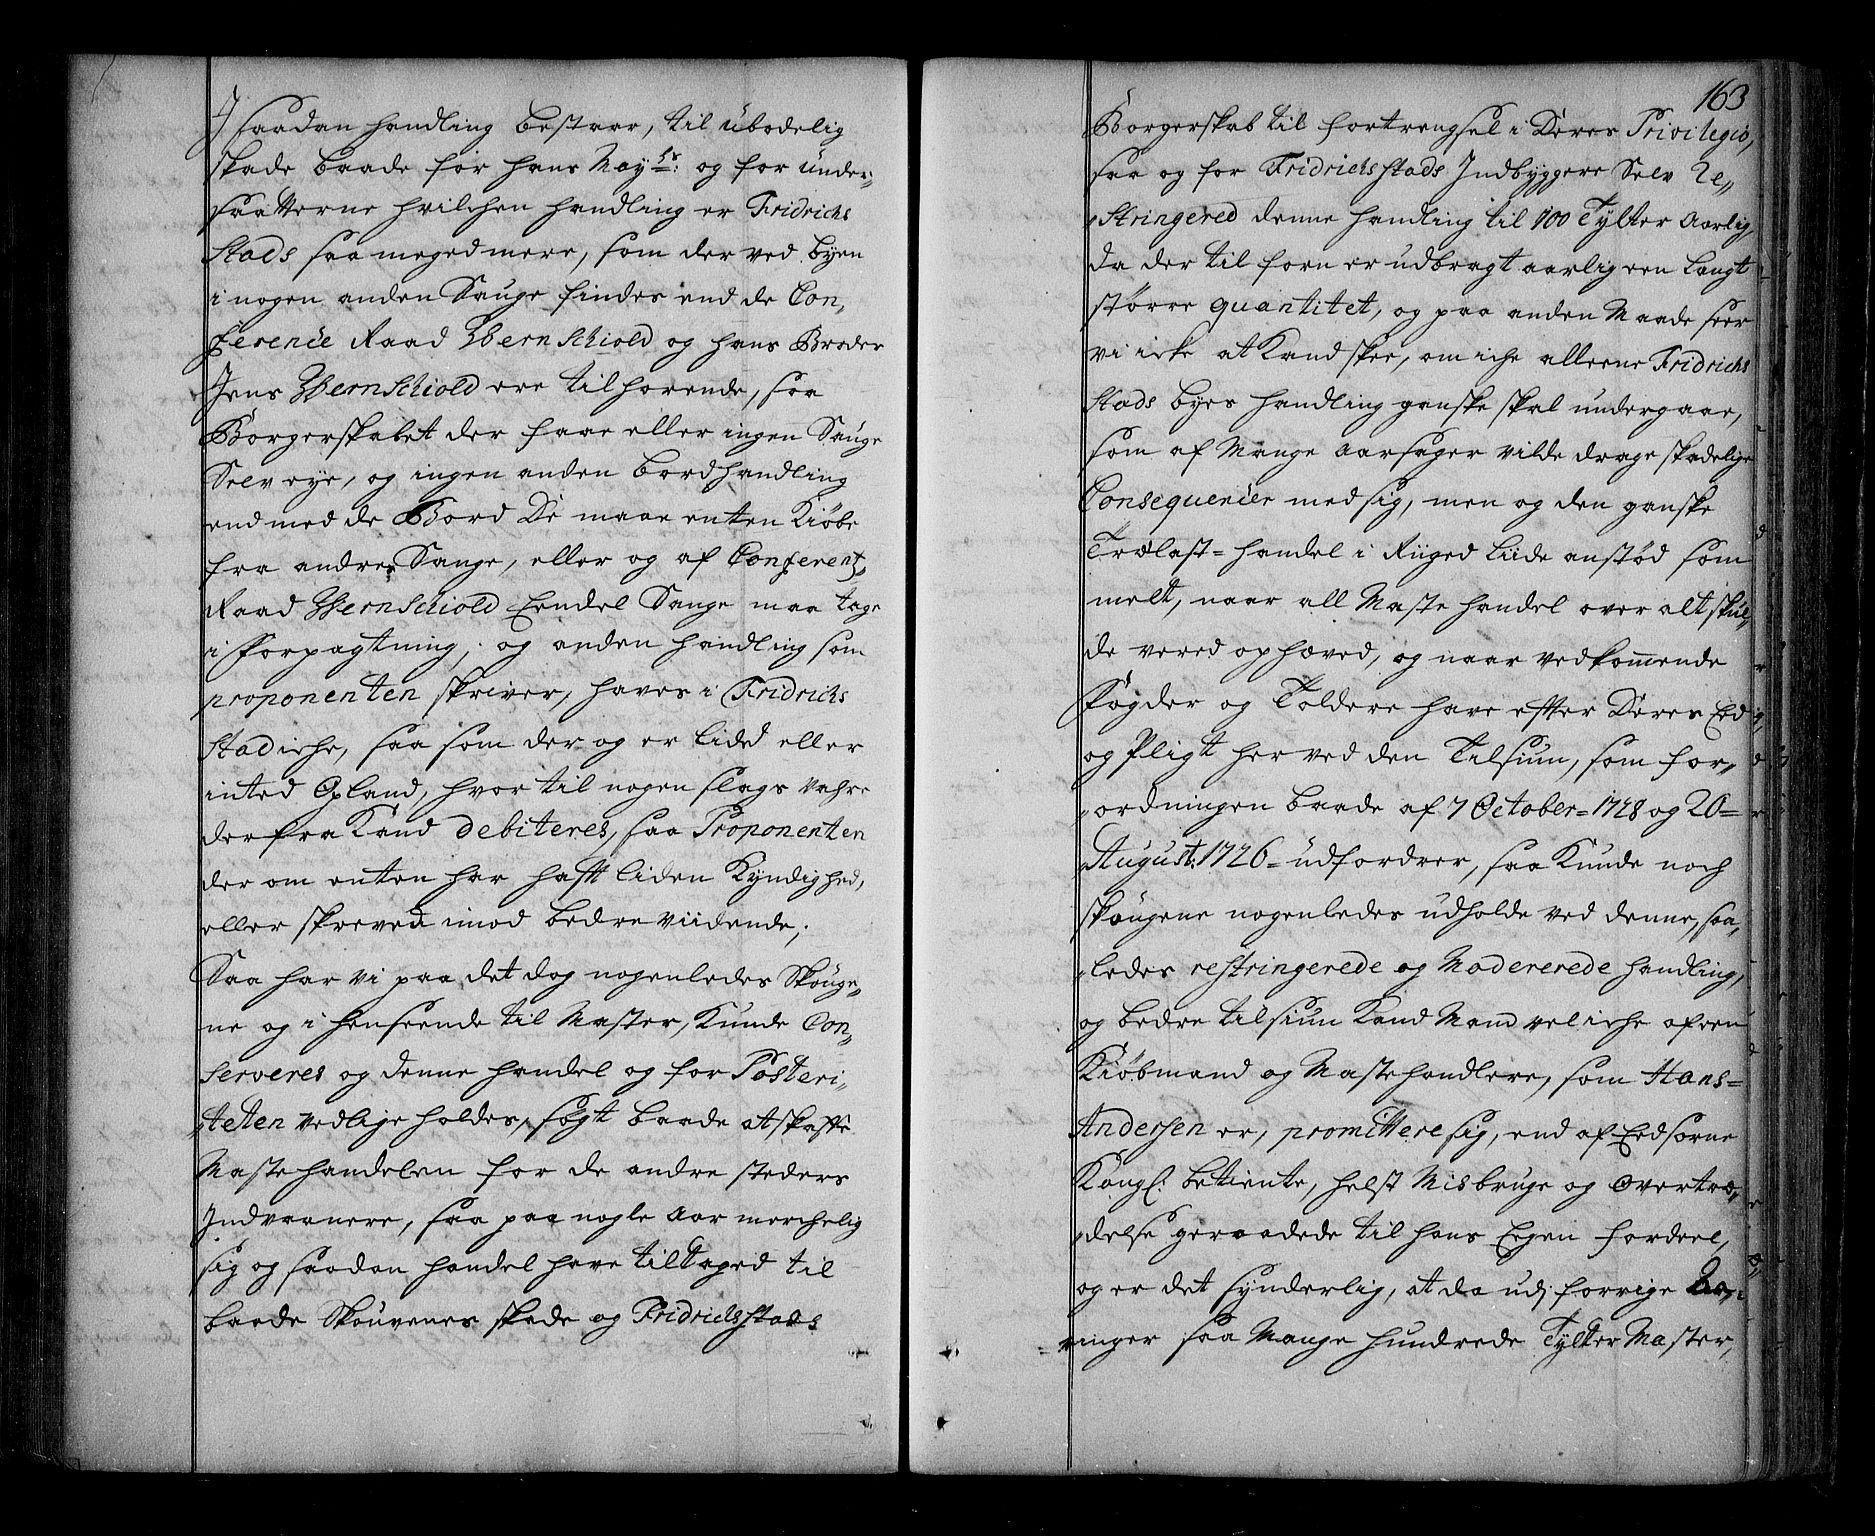 J saadan handling bestaar, til ubodelig
skade baade for hans Mayts: og for under-
saatterne hvilchen handling er Fridrichs
Stads saa meged mere, som der ved byen
i nogen anden Sauge findes end de Con,
ference Raad Wernschiold og hans Broder
Jens Wernschiold ere tilhørende, saa
Borgerskabet der faae eller ingen Sauge
Selv eye, og ingen anden bordhandling
end med de Bord De maae enten kiøbe
fra andre Sauge, eller og af Conferentz
Raad Wernschiold Eendel Sauge maa tage
i Forpagtning, og anden handling som
proponenten skriver, haves i Fridrichs
Stad iche, saa som der og er lided eller
inted Opland, hvor til nogen slags vahre
der fra kand debiteres, saa Proponenten
der om enten har hafft liden kyndighed,
eller skreved imod bedre viidende,
Saa har vi paa det dog nogenledes Skouge-
ne og i henseende til Master, kunde Con,,
serveres og denne handel og for Posteri,,
,,teten vedlige holdes, søgt baade at skaffe
Maste handelen for de andre steders
Indvaanere, saa paa nogle Aar merchelig
sig og saadan handel have tiltaged til
baade Skouvenes skade og Fridrichsstads
163
Borgerskab til fortrengsel i Deres Privilegio,
saa og for Fridrichsstads Indbyggere Selv Re,,
,,stringered denne handling til 100 Tylter Aarlig,
da der til forn er udbragt aarlig een langt
større quantitet, og paa anden Maade seer
vi icke at kand skee, om iche alleene Fridrichs
Stads byes handling ganske skal undergaae,
som af Mange Aarsager vilde drage skadelige
Consequencier med sig, men og den ganske
Trælast-handel i Riiged liide anstød som
melt, naar all Maste handel over alt skul,,
de vered ophæved, og naar vedkomende
Fogder og Toldere have efter Deres Eed
og Pligt her ved den Tilsiun, som for,,
,,ordningen baade af 7 October-1728 og 20-
August: 1726- udfordrer, saa kunde noch
skougene nogenledes udholde ved denne, saa,,
,,ledes restringerede og Modererede handling,
og bedre tilsiun kand Mand vel iche af een
Kiøbmand og Mastehandlere, som Hans-
Andersen er, promittere sig, end af Eedsorne
Kongl: betiente, helst Misbruge og Overtræ,,
,,delse geraadede til hans Egen fordeel,
og er det synderlig, at da udj forrige
,,ringer saa Mange hundrede Tylter Master,